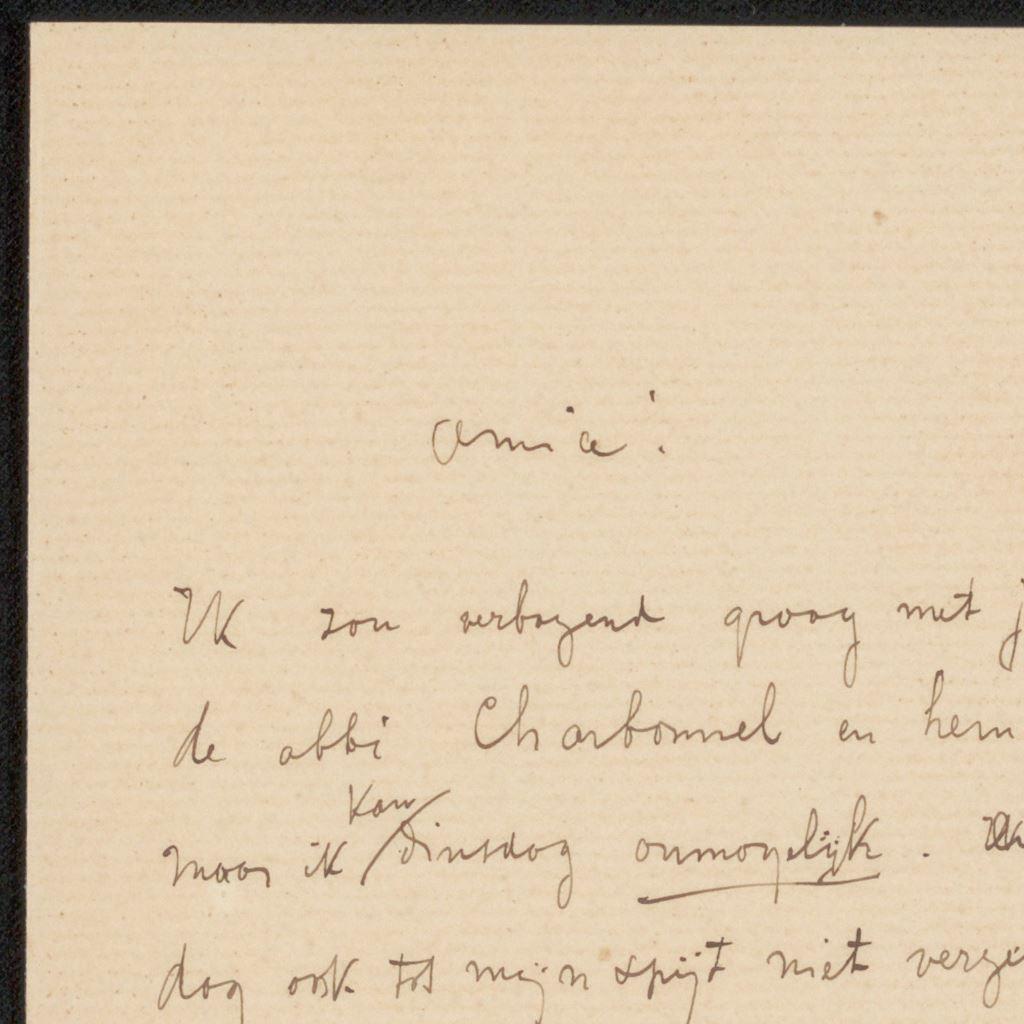 Amice!
Ik zou verbazend graag met
de abbé Charbonnel en hem
kan
maar ik dinsdag onmogelijk. Ik
dag ook tot mijn spijt niet verge